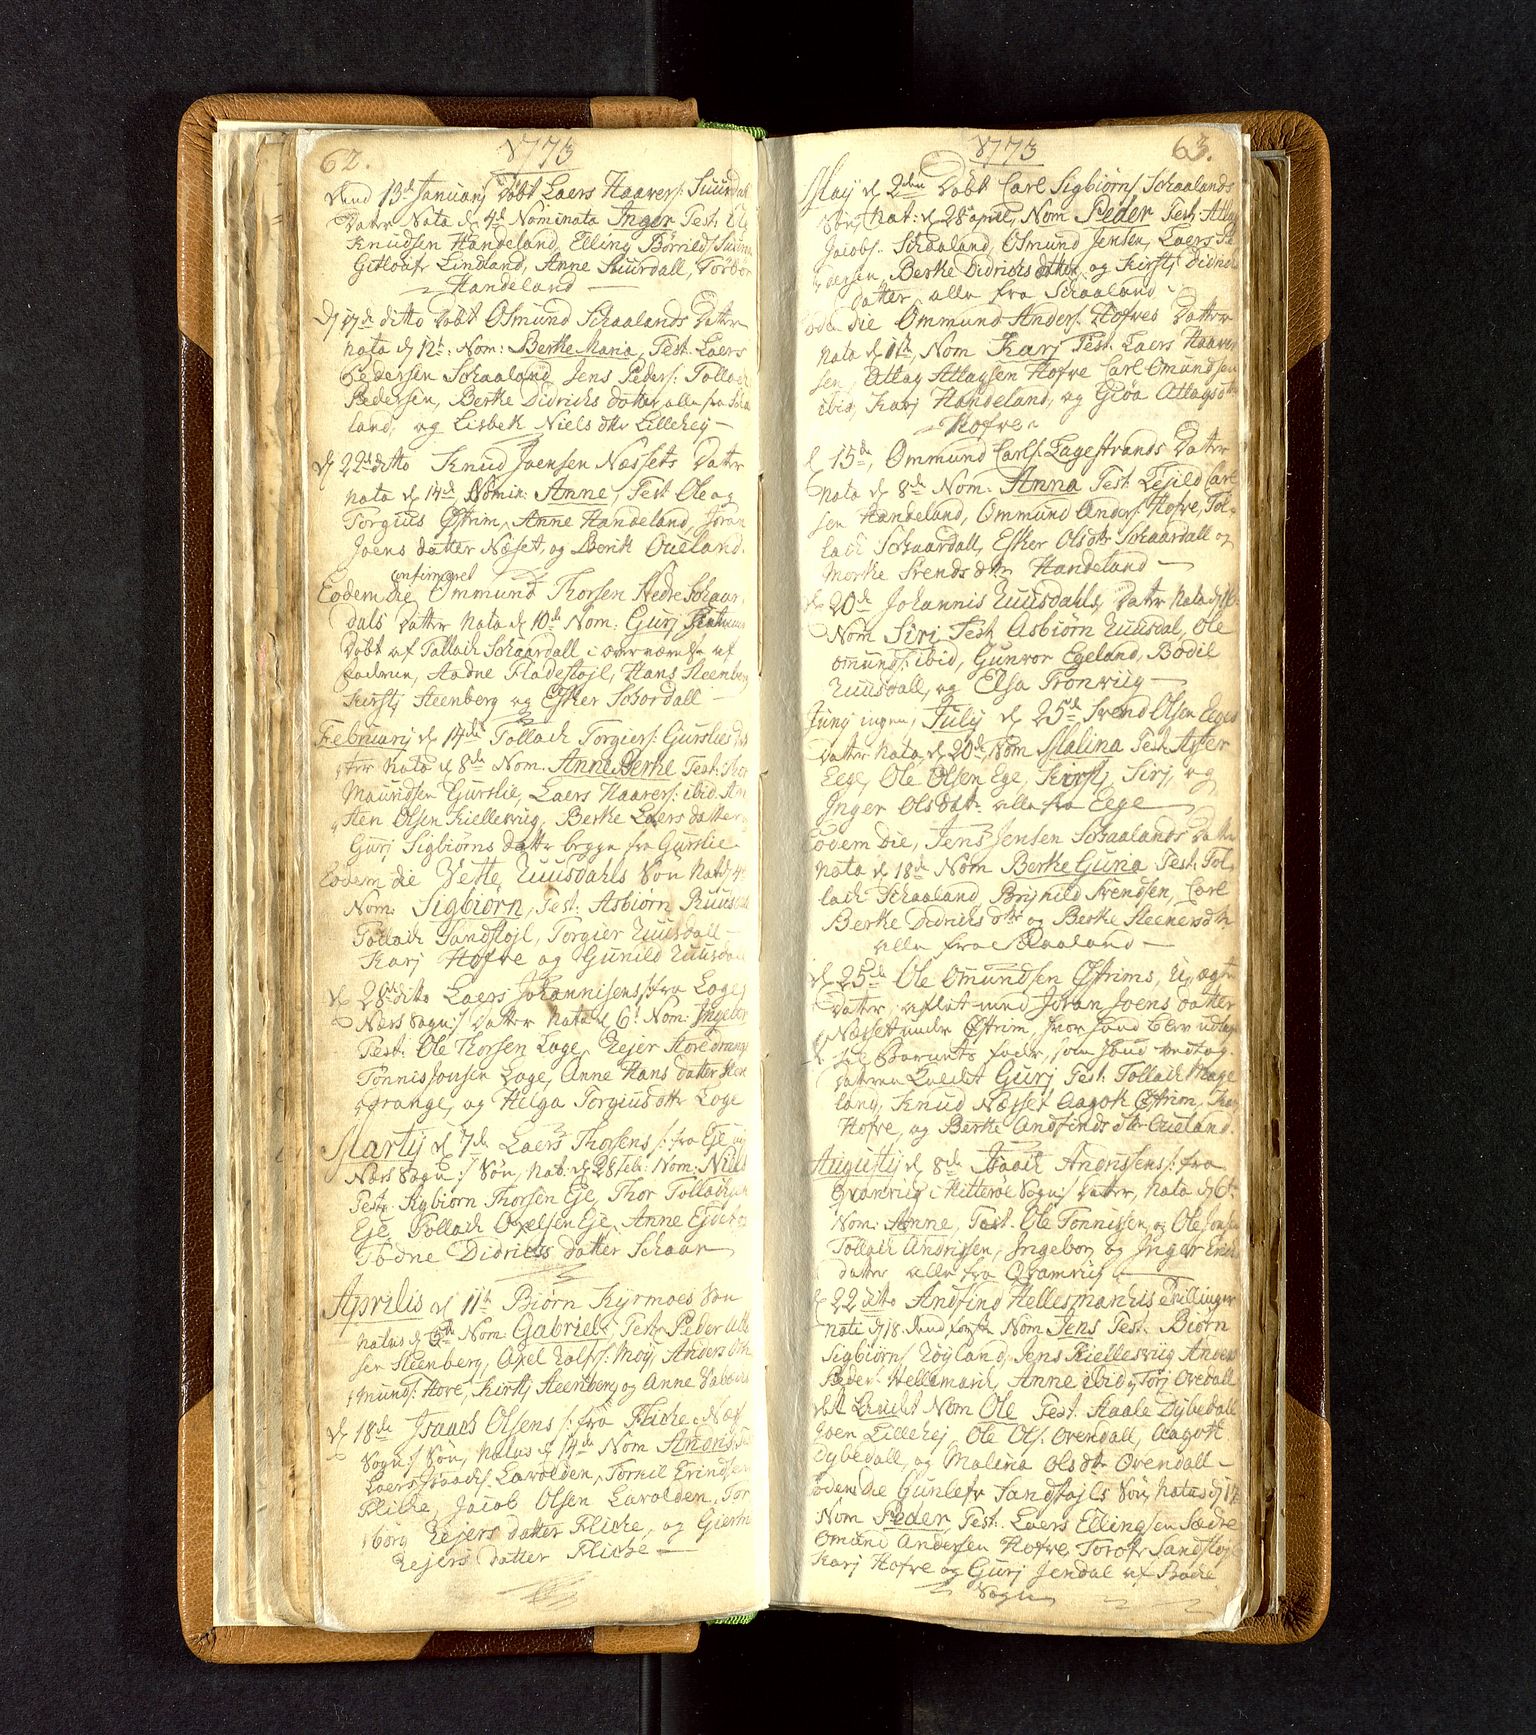 62.
1773
Dend 13de Januarj Døbt Laers Haavers: Suurdals
Datter Nata d 4de Nominata Inger Test: Ole
Knudsen Handeland, Elling Børrilds: Suurda
Lindland, Anne Suurdall, Torbor
Handeland
D 17de ditto Døbt Osmund Schaalands Datter
Nata d 12t: Nom: Berthe Maria, Test. Laers
Pedersen Schaaland Jens Peders: Tollach
Pedersen, Berthe Didrichs datter alle fra Schaa
land, og Lisbeth Niels dttr Lillehej
d 22de ditto Knud Joensen Næssets Datter
nata d 14de Nomin: Anne, Test Ole og
Torgius Østrim, Anne Handeland, Joran
Joens datter Næset, og Berit Oueland.
confirmeret
Eodem die Ommund Thorsen Nedre Schaar-
dals Datter Nata d 10de Nom: Gurj
Døbt af Tollach Schaardall i overværelse af
Faderen, Aadne Fladestøjl, Hans Steenberg
Kirstj Steenberg og Esther Schordall
Februarij d 14de Tollach Torgiers: Gurslies Dat
ter Nata d 8de Nom. Anne Berthe Test: Thor
Mauridsen Gurslie, Laers Haavers: ibid. Am
sten Olsen Kiellesviig, Berthe Laers datter
Gurj Sigbiørns datter begge fra Gurslie
Eodem die Vette Ruusdahls Søn Nat. d 4t
Nom: Sigbiørn, Test: Asbiørn Ruusdal
Tollach Sandstøjl, Torgier Ruusdall
Karj Hofve og Gunild Ruusdall
d 28de ditto Laers Johannisens /: fra Loge,
Næss Sogn :/ Datter nata d 6t Nom: Ingebor
Test: Ole Thorsen Loge, Rejer Store Drange
Tønnis Jonsen Loge, Anne Hans datter Store
drange, og Helga Torgiusdttr Loge
Martij d 7de Laers Thorsens /: fra Eje uj
Næss Sogn :/ Søn, Nat: d 28 Feb: Nom: Niels
Test: Sigbiørn Thorsen Eje, Thor Tollachsen
Eje, Tollach Oxelsen Eje, Anne Ejde og
Todne Didrichs datter Schaar
Aprilis d 11te Biørn Kjrmoes Søn
natus d 5te Nom. Gabriel, Test. Peder Atla
sen Steenberg, Axel Rolfs: Moj, Anders Om
munds: Hove, Kirstj Steenberg og Anne
d 18de Isaach Olsens /: fra Fliche, Næss
Sogn :/ Søn, Natus d 14de Nom Andris
Laers Isaachs: Lavolden, Torkil Erindsen
Fliche, Jacob Olsen Lavolden, Tor
borg Rejers datter Fliche, og Giertru
Rejers datter Fliche
63.
1773
Maij d 2den Døbt Carl Sigbiørns Schaalands
Søn, Nat: d 28 april, Nom Peder Test: Atlag
Jacobs: Schaaland, Osmund Jensen, Laers Pe
dersen, Berthe Didrichs datter og Kirstj Didrichs
datter, alle fra Schaaland
Eodem die Ommund Anders: Hofves Datter
Nata d 1te, Nom Karj Test: Laers Haaver
sen, Atlag Atlagsen Hofve Carl Omundsen
ibid, Karj Handeland, og Giøa Atlagsdtr
Hofve
d 15de, Ommund Carls: Lagestrands Datter
Nata d 8de Nom: Anna Test: Tejild Carl
sen Handeland, Ommund Anders: Hofve, Tol-
lach Schaardall, Esther Ols dttr Schaardall og
Marthe Svends dttr Handeland
d 20de Johannis Ruusdahls, Datter Nata d
Nom Sirj Test Asbiørn Ruusdal, Ole
omunds: ibid, Gunvor Egeland, Bodil
Ruusdall, og Elsa Tronviig
Junij ingen, Julij d 25de Svend Olsen Eeges
Datter Nata, d 20de, Nom Malina Test:
Eege, Ole Olsen Ege, Kirstj, Sirj, og
Inger Olsdatr alle fra Eege
Eodem Die, Jens Jensen Schaalands Datter
nata d 18de Nom Berthe Guna Test: Tol-
lach Schaaland, Brijnild Svendsen, Carl
Berthe Didrichs dttr og Berthe Steeners dttr
alle fra Skaaland
d 25de Ole Omundsen Østrims, U,ægte
datter, aflet med Joran Joens datter
Næsset under Østrim, hvor hand blev udlagt
til Barnets fader, som hand vedtog.
datteren kaldet Gurj Test. Tollach Mage
land, Knud Næsset Aagot Østrim, Karj
Hofve, og Berthe Andfinds dttr Oueland.
Augustij d 8de Isaach Andrissens /: fra
Qvanviig i Hitterøe Sogn :/ Datter, Nata d 6t
Nom: Anne, Test. Ole Tønnissen, og Ole Jonsen
Tollach Andrissen, Ingebor og Inger Erichs
datter alle fra Qvamviig
d 22 ditto Andfind Hellesmarchs Tvillinger
nati d 18. dend første Nom Jens Test. Biørn
Sigbiørns Røyland, Jens Kiellesviig Anders
Peders: Hellemarch, Anne ibid, Torj Ovedall
det andet Nom Ole Test. Staale Dybedall
Even Lillehej, Ole Ols: Ovendall, Aagoth
Dybedall, og Malina Ols dttr Ovendall
Eodem Die Gunlefr Sandstøjls Søn, natus d 17
Nom Peder Test: Laers Ellingsen Sædre
Omund Andersen Hofve, Torofr Sandstøjl
Karj Hofve og Gurj Jendal af Bache
Sogn